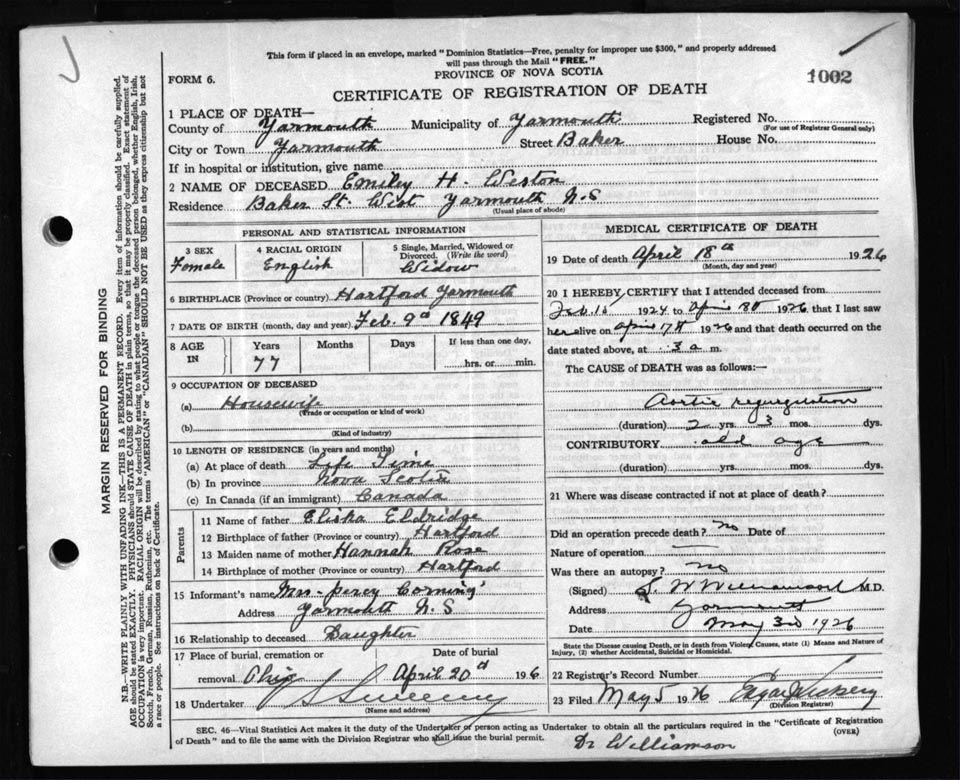 This form if placed in an envelope, marked "Dominion Statistics—Free, penalty for improper use $300," and properly addressed
will pass through the Mail "FREE."
PROVINCE OF NOVA SCOTIA
FORM 6.
1002
CERTIFICATE OF REGISTRATION OF DEATH
1 PLACE OF DEATH—
County of Yarmouth Municipality of Yarmouth Registered No.
(For use of Registrar General only)
City or Town Yarmouth Street Baker House No.
If in hospital or institution, give name
2 NAME OF DECEASED Emiley H. Weston
Residence Baker St. West Yarmouth N.S
(Usual place of abode)
PERSONAL AND STATISTICAL INFORMATION
3 SEX Female
4 RACIAL ORIGIN English
5 Single, Married, Widowed or Divorced. (Write the word) Widow
6 BIRTHPLACE (Province or country) Hartford Yarmouth
7 DATE OF BIRTH (month, day and year) Feb. 9th 1849
8 AGE IN Years Months Days If less than one day,
77 hrs. or min.
9 OCCUPATION OF DECEASED
(a) Housewife
(Trade or occupation or kind of work)
(b)
(Kind of industry)
10 LENGTH OF RESIDENCE (in years and months)
(a) At place of death Life Time
(b) In province Nova Scotia
(c) In Canada (if an immigrant) Canada
Parents
11 Name of father Elisha Eldridge
12 Birthplace of father (Province or country) Hartford
13 Maiden name of mother Hannah Rose
14 Birthplace of mother (Province or country) Hartford
15 Informant's name Mrs. Percy Corning
Address Yarmouth N.S
16 Relationship to deceased Daughter
17 Place of burial, cremation or Date of burial
removal Ohio April 20th 1926
18 Undertaker S Sweeny
(Name and address)
MEDICAL CERTIFICATE OF DEATH
19 Date of death April 18th 1926
(Month, day and year)
20 I HEREBY CERTIFY that I attended deceased from
Feb. 15 1924 to April 18th 1926 that I last saw
her alive on April 17th 1926 and that death occurred on
date stated above, at 3 a m.
The CAUSE of DEATH was as follows:—
Aortic regurgitation
(duration) 2 yrs. 3 mos. dys.
CONTRIBUTORY old age
(duration) yrs. mos. dys.
21 Where was disease contracted if not at place of death?
Did an operation precede death? no Date of
Nature of operation
Was there an autopsy? no
(Signed) S. W Williamson M.D.
Address Yarmouth
Date May 3rd 1926
State the Disease causing Death, or in death from Violent Causes, state (1) Means and Nature of
Injury, (2) whether Accidental, Suicidal or Homicidal.
22 Registrar's Record Number
23 Filed May 5 1926
(Division Registrar)
SEC. 46—Vital Statistics Act makes it the duty of the Undertaker or person acting as Undertaker to obtain all the particulars required in the "Certificate of Registration
of Death" and to file the same with the Division Registrar who shall issue the burial permit. (OVER)
Dr Williamson
MARGIN RESERVED FOR BINDING
N.B.—WRITE PLAINLY WITH UNFADING INK—THIS IS A PERMANENT RECORD. Every item of information should be carefully supplied.
AGE should be stated EXACTLY. PHYSICIANS should STATE CAUSE OF DEATH in plain terms, so that it may be properly classified. Exact statement of
OCCUPATION is very important. RACIAL ORIGIN will be described by stating to what people or tongue the deceased person belonged, whether English, Irish,
Scotch, French, German, Russian, Ruthenian, etc. The terms "AMERICAN" or "CANADIAN" SHOULD NOT BE USED as they express citizenship but not
a race or people. See instructions on back of Certificate.